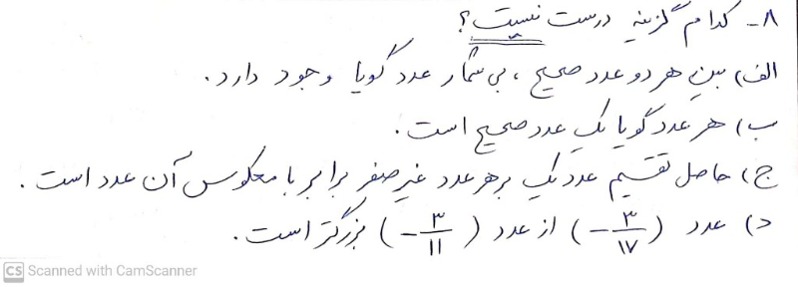 ۸- کدام گزینه درست نیست؟
الف) بین هر دو عدد صحیح، بی شمار عدد گویا وجود دارد.
ب) هر عدد گویا یک عدد صحیح است.
ج) حاصل تقسیم عدد یک بر هر عدد غیر صفر برابر با معکوس آن عدد است.
د) عدد (-۳/۱۷) از عدد (-۳/۱۱) بزرگتر است.
CS Scanned with CamScanner